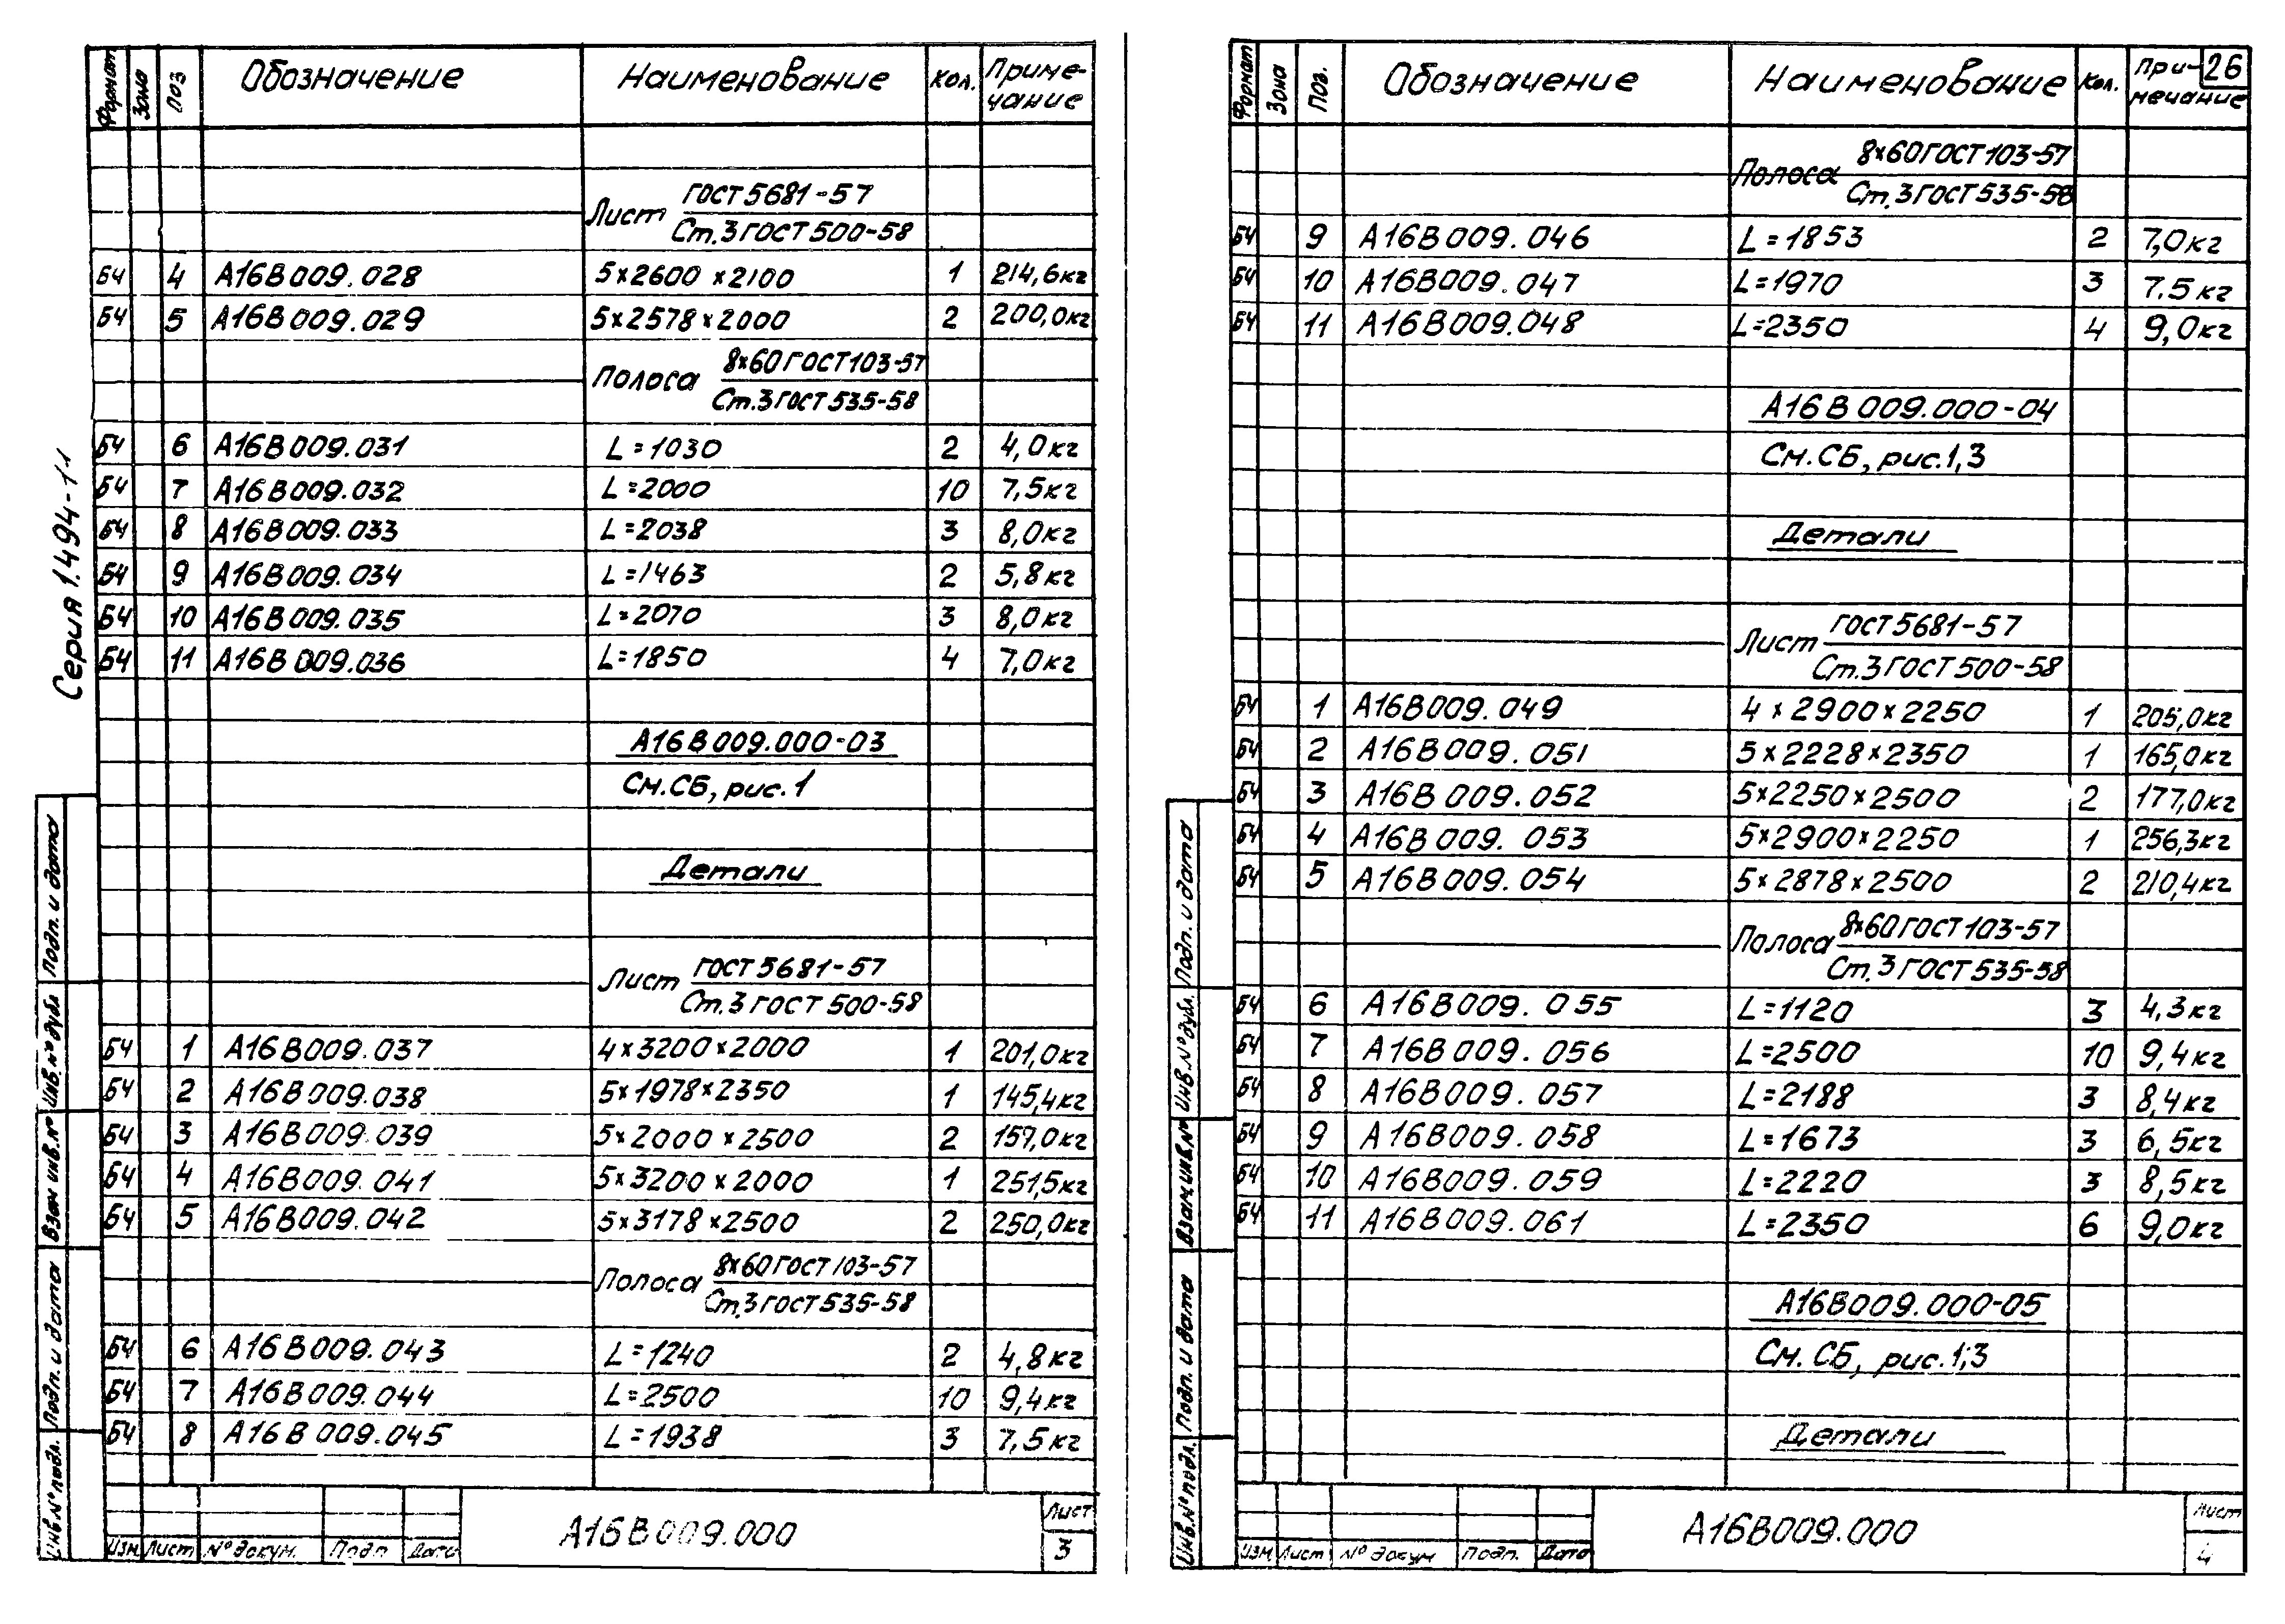 Серия 1.494-11
Формат Зона Поз Обозначение Наименование Кол. Приме-чание
Лист ГОСТ 5681-57
Ст.3 ГОСТ 500-58
БЧ 4 А16В009.028 5×2600×2100 1 214,6кг
БЧ 5 А16В009.029 5×2578×2000 2 200,0кг
Полоса 8×60 ГОСТ 103-57
Ст.3 ГОСТ 535-58
БЧ 6 А16В009.031 L=1030 2 4,0кг
БЧ 7 А16В009.032 L=2000 10 7,5кг
БЧ 8 А16В009.033 L=2038 3 8,0кг
БЧ 9 А16В009.034 L=1463 2 5,8кг
БЧ 10 А16В009.035 L=2070 3 8,0кг
БЧ 11 А16В009.036 L=1850 4 7,0кг
А16В009.000-03
См.СБ, рис.1
Детали
Лист ГОСТ 5681-57
Ст.3 ГОСТ 500-58
БЧ 1 А16В009.037 4×3200×2000 1 201,0кг
БЧ 2 А16В009.038 5×1978×2350 1 145,4кг
БЧ 3 А16В009.039 5×2000×2500 2 157,0кг
БЧ 4 А16В009.041 5×3200×2000 1 251,5кг
БЧ 5 А16В009.042 5×3178×2500 2 250,0кг
Полоса 8×60 ГОСТ 103-57
Ст.3 ГОСТ 535-58
БЧ 6 А16В009.043 L=1240 2 4,8кг
БЧ 7 А16В009.044 L=2500 10 9,4кг
БЧ 8 А16В009.045 L=1938 3 7,5кг
Инв.№подл. Подп. и дата Взам инв.№ Инв.№дубл Подп. и дата
Изм Лист № докум. Подп Дата
А16В009.000
Лист
3
26
Формат Зона Поз. Обозначение Наименование Кол. При-мечание
Полоса 8×60 ГОСТ 103-57
Ст.3 ГОСТ 535-58
БЧ 9 А16В009.046 L=1853 2 7,0кг
БЧ 10 А16В009.047 L=1970 3 7.5кг
БЧ 11 А16В009.048 L=2350 4 9,0кг
А16В009.000-04
См.СБ, рис.1,3
Детали
Лист ГОСТ 5681-57
Ст.3 ГОСТ 500-58
БЧ 1 А16В009.049 4×2900×2250 1 205,0кг
БЧ 2 А16В009.051 5×2228×2350 1 165,0кг
БЧ 3 А16В009.052 5×2250×2500 2 177,0кг
БЧ 4 А16В009.053 5×2900×2250 1 256,3кг
БЧ 5 А16В009.054 5×2878×2500 2 210,4кг
Полоса 8×60 ГОСТ 103-57
Ст.3 ГОСТ 535-58
БЧ 6 А16В009.055 L=1120 3 4,3кг
БЧ 7 А16В009.056 L=2500 10 9,4кг
БЧ 8 А16В009.057 L=2188 3 8,4кг
БЧ 9 А16В009.058 L=1673 3 6,5кг
БЧ 10 А16В009.059 L=2220 3 8,5кг
БЧ 11 А16В009.061 L=2350 6 9,0кг
А16В009.000-05
См. СБ, рис.1,3
Детали
Инв.№подл. Подп. и дата Взам.инв.№ Инв.№дубл. Подп. и дата
Изм Лист № докум Подп. Дата
А16В009.000
Лист
4